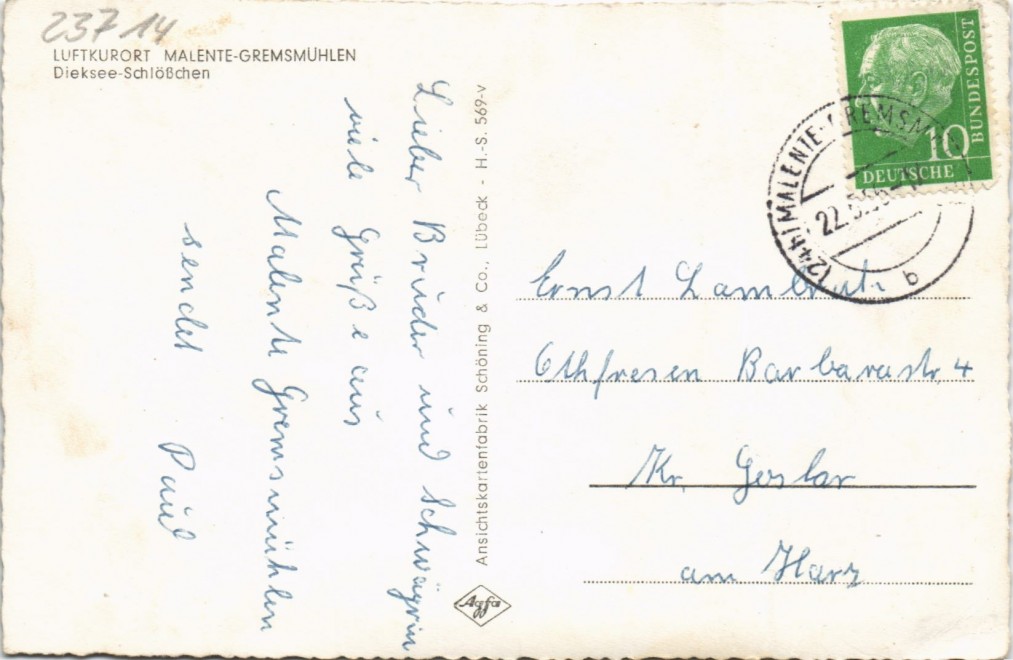 23714
LUFTKURORT MALENTE-GREMSMÜHLEN
Dieksee-Schlößchen
Lieber Bruder und Schwägrin
viele Grüße aus
Malente Gremsmühlen
sendet Paul
Ansichtskartenfabrik Schöning & Co., Lübeck - H.-S. 569-v
Agfa
BUNDESPOST
10
DEUTSCHE
(24b) MALENTE-GREMSM
22.5.56
b
Ernst
Othfresen Barbarastr. 4
Kr. Goslar
am Harz